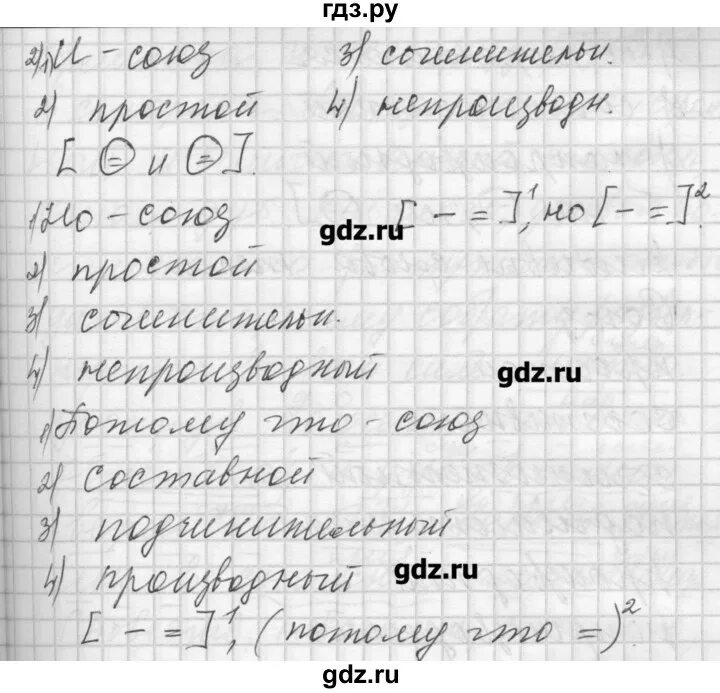 гдз.ру
2) 1) И - союз 3) сочинительн.
2) простой 4) непроизводн.
[ = и = ].
1) Но - союз [ - = ]¹, но [ - = ]².
gdz.ru
2) простой
3) сочинительн.
4) непроизводный
gdz.ru
1) Потому что - союз
2) составной
3) подчинительный
4) производный
gdz.ru
[ - = ]¹, (потому что =)².
gdz.ru